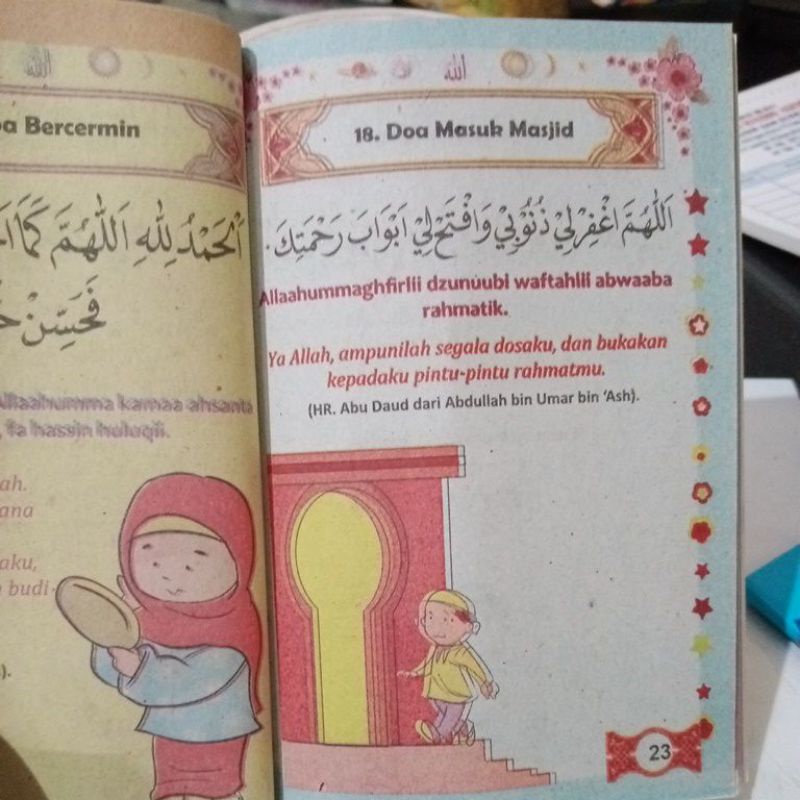 الله
a Bercermin
اَلْحَمْدُ لِلّٰهِ اَللّٰهُمَّ كَمَا
فَحَسِّنْ
Allaahumma kamaa ahsanta
, fa hassin huluqii.
ah.
ana
aku,
budi
).
الله
18. Doa Masuk Masjid
اَللّٰهُمَّ اغْفِرْلِيْ ذُنُوْبِيْ وَافْتَحْ لِيْ اَبْوَابَ رَحْمَتِكَ.
Allaahummaghfirlii dzunuubi waftahlii abwaaba
rahmatik.
Ya Allah, ampunilah segala dosaku, dan bukakan
kepadaku pintu-pintu rahmatmu.
(HR. Abu Daud dari Abdullah bin Umar bin ‘Ash).
23